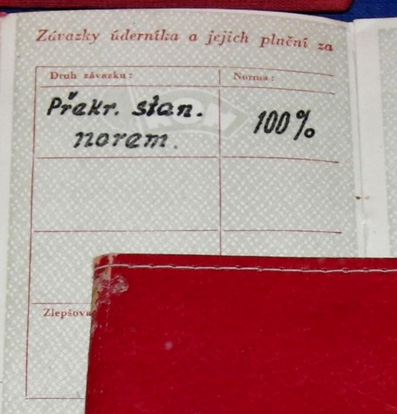 Závazky úderníka a jejich plnění za
Druh závazku: Norma:
Překr. stan. 100%
norem.